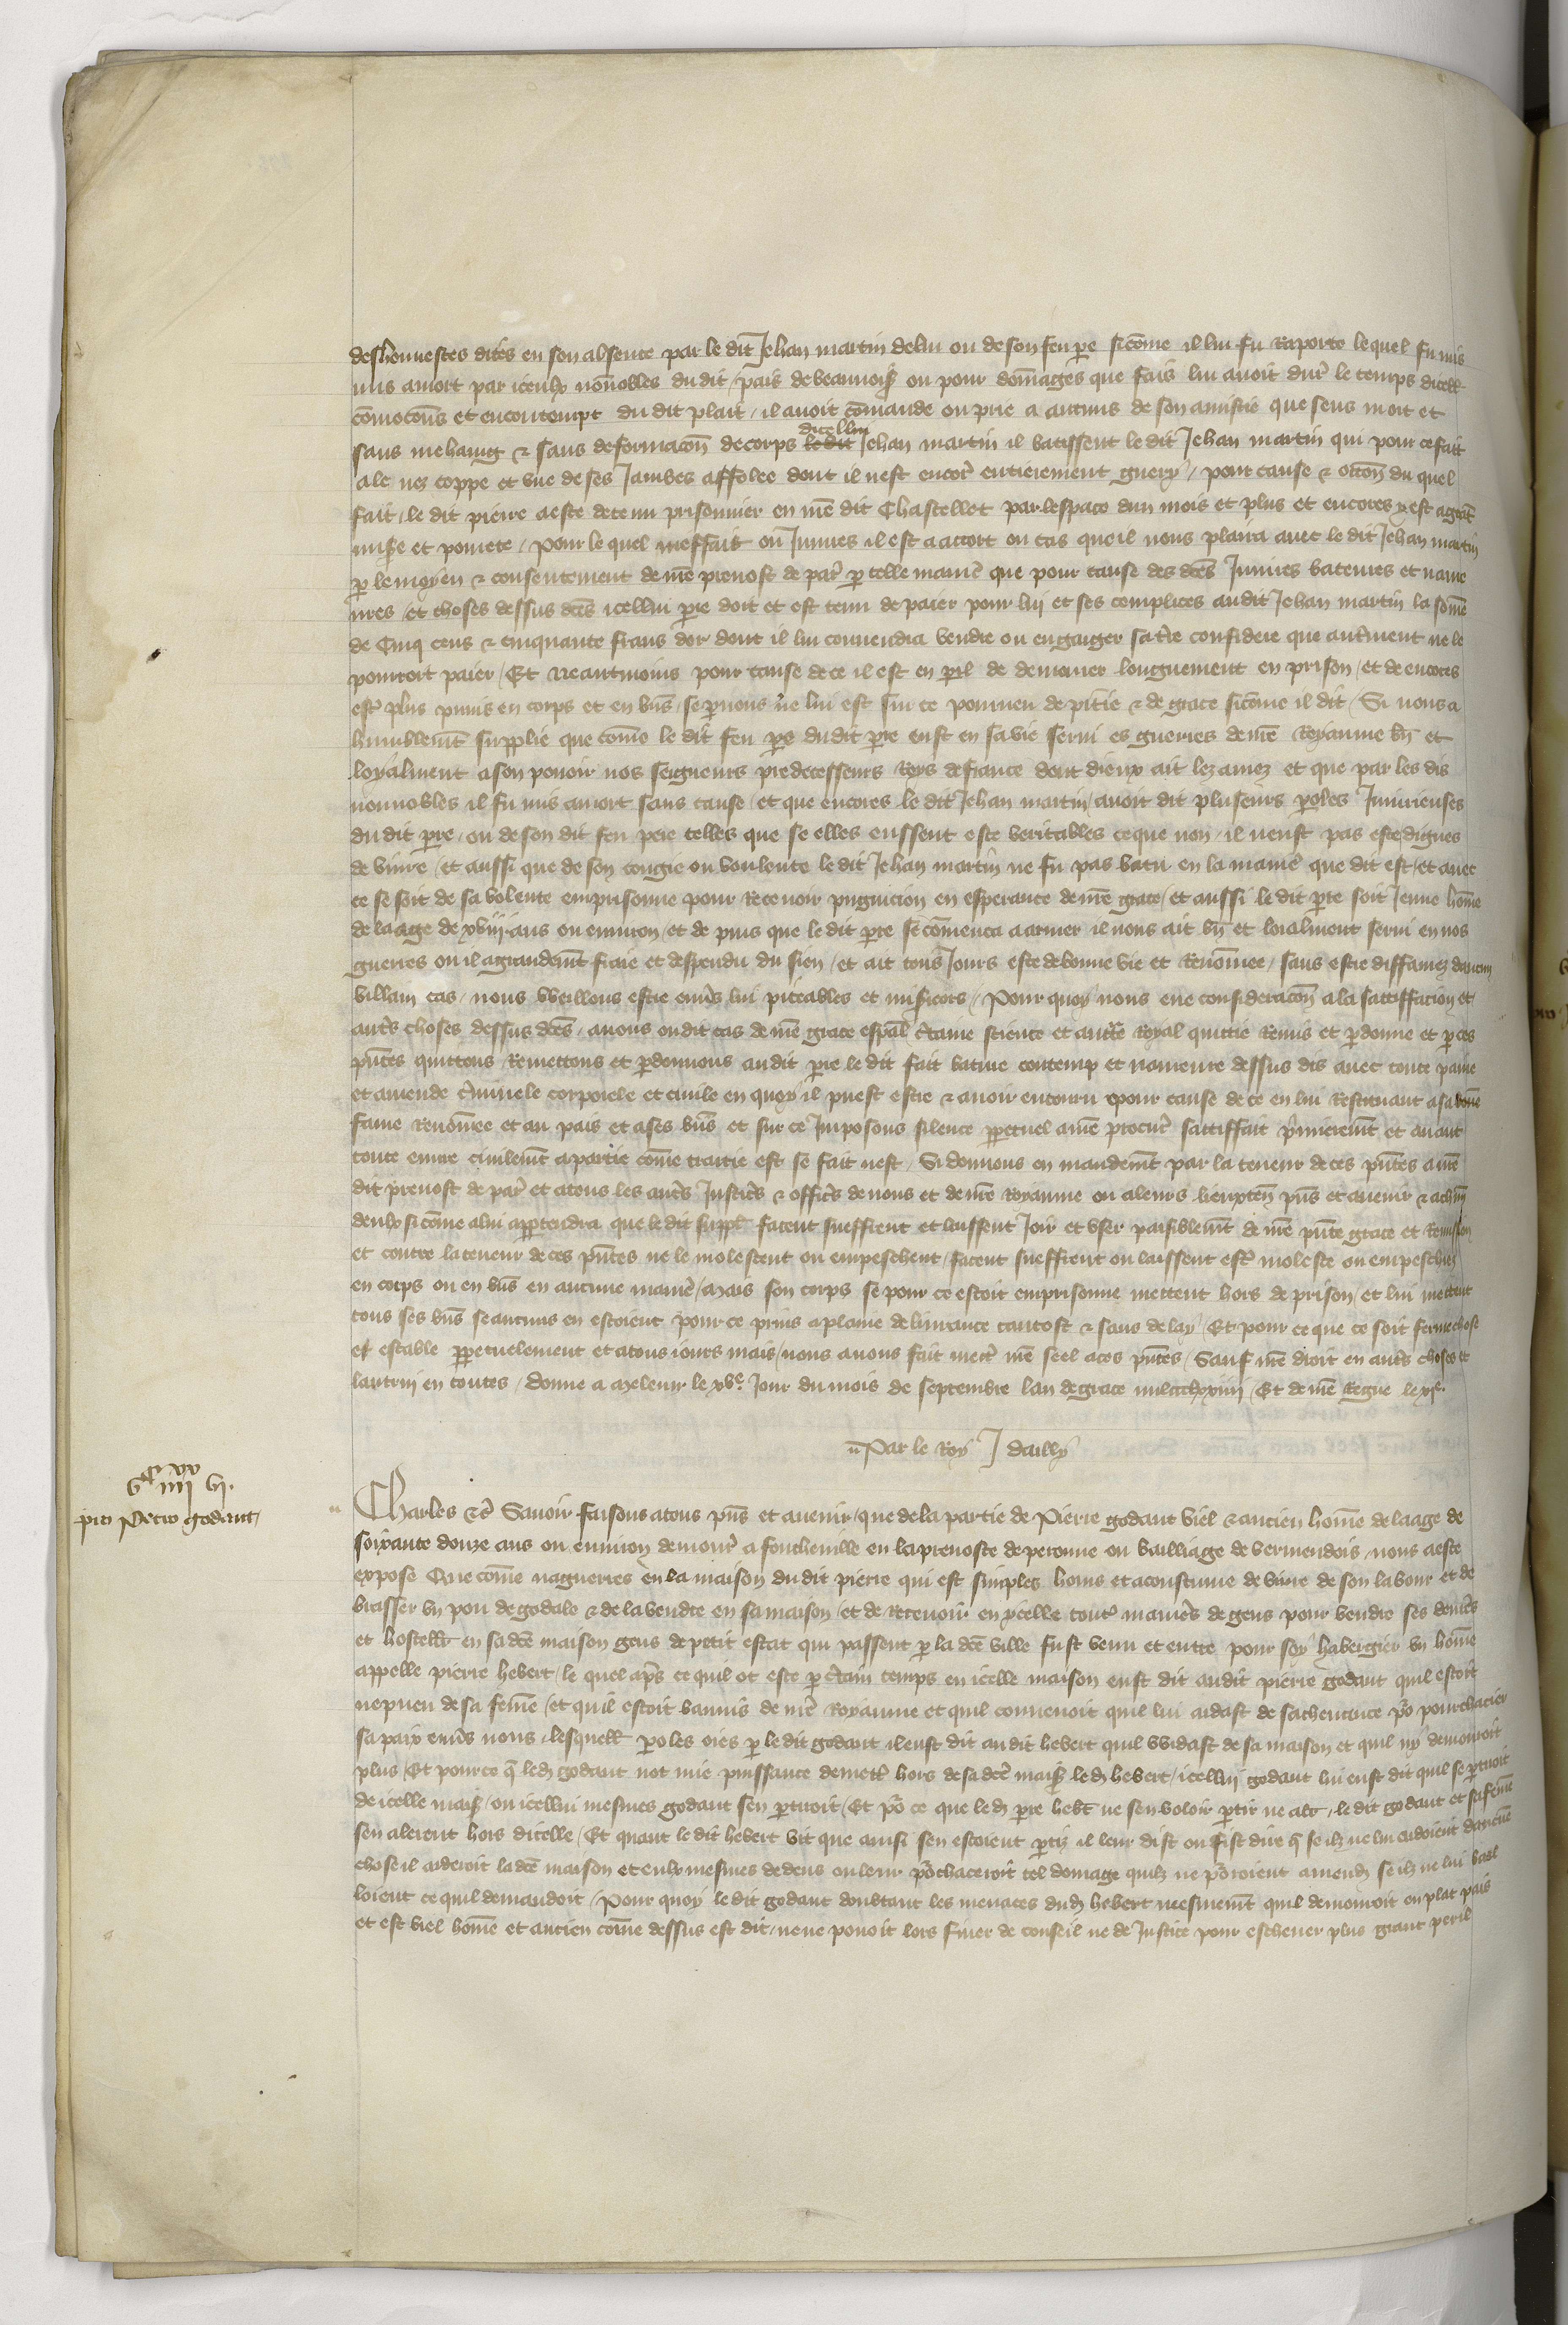 deshonnestes dites en son absence par le dit Jehan martin de lui ou de son feu pere si come il lui fu raporte lequel fu mis
mis a mort par iceulx non nobles du dit pais de beauvoisis ou pour domages que fais lui avoit dur le temps dicell
comocons et en contempt du dit plait / il avoit comande ou prie a aucuns de son amistie que sens mort et
sans mehaing & sans deformacon de corps le dit dicellui Jehan martin il batissent le dit Jehan martin qui pour ce fait
a le nez coppe et une de ses Jambes affolee dont il nest encor entierement guery / pour cause & occon du quel
fait / le dit pierre a este detenu prisonnier en nre dit Chastellet par lespace dun mois et plus et encores y est a grant
misere et povrete / Pour le quel meffait ou Injures il est a accort ou cas que il nous plaira avec le dit Jehan martin
p le moyen & consentement de nre prevost de par p telle manie que pour cause des dces Injures bateures et navre
ures et choses dessus dces icellui pre doit et est tenu de paier pour lui et ses complices au dit Jehan martin la some
de Cinq cens & cinquante frans dor dont il lui convendra vendre ou engaiger sa tre considere que autrement ne le
pourroit paier / Et neantmoins pour cause de ce il est en pil de demourer longuement en prison / et de encores
est plus punis en corps et en bns / se p nous ne lui est sur ce pourveu de pitie & de grace si come il dit / Si nous a
humblemt supplie que come le dit feu pe du dit pre eust en sa vie servi es guerres de nre Royaume bn et
loyalment a son povoir nos seigneurs predecesseurs Roys de france dont dieux ait lez amez et que par les dis
non nobles il fu mis a mort sans cause / et que encores le dit Jehan martin / avoit dit pluseurs poles Injurieuses
du dit pre / ou de son dit feu pere telles que se elles eussent este veritables ce que non / il neust pas este dignes
de vivre / et aussi que de son congie ou voulente le dit Jehan martin ne fu pas batu en la manie que dit est / et avec
ce se soit de sa volente emprisonne pour Recevoir pugnicion en esperance de nre grace / et aussi le dit pre soit Jeune home
de laage de xviii ans ou environ / et de puis que le dit pre se comenca a armer il nous ait bn et loialment servi en nos
guerres ou il a grandemt fraie et despendu du sien / et ait tous Jours este de bonne vie et Renomee / sans estre diffamez daucun
villain cas / nous veillons estre envs lui piteables et misicors / Pour quoy nous eue consideracon a la satiffacion et
autrs choses dessus dces / avons ou dit cas de nre grace espal ctaine science et auctte Royal quittie Remis et pdonne et p ces
pntes quittons Remettons et pdonnons au dit pre le dit fait bature contemp et navreure dessus dis avec toute paine
et amende ciminele corporele et civile en quoy il puest estre & avoir encouru pour cause de ce en lui Restituant a sa bone
fame Renomee et au pais et a ses bns et sur ce Imposons silence ppetuel a nre procur satiffait pmieremt et avant
toute euvre civilemt a partie come traitie est se fait nest / Si donnons en mandemt par la teneur de ces pntes a nre
dit prevost de par et a tous les autrs Justics & officrs de nous et de nre Royaume ou a leurs lieuxten pns et avenir & a chun
deulx si come a lui apptendra que le dit suppl facent sueffrent et laissent Joir et user paisiblemt de nre pnte grace et Remission
et contre la teneur de ces pntes ne le molestent ou empeschent / facent sueffrent ou laissent est moleste ou empeschiez
en corps ou en bns en aucune manie / Mais son corps se pour ce estoit emprisonne mettent hors de prison / et lui mettent
tous ses bns se aucuns en estoient pour ce prins a plaine delivrance tantost & sans delay / Et pour ce que ce soit ferme chose
et estable ppetuelement et a tous jours mais / nous avons fait mett nre seel a ces pntes / Sauf nre droit en autrs choses et
lautrui en toutes / donne a Meleun le xve Jour du mois de septembre lan de grace mil ccc lxxiiii / Et de nre Regne le xie
Par le Roy J dailly
iiii vi
pro Petro godant
Charles &c Savoir faisons a tous pns et avenir / que de la partie de Pierre godant viel & ancien home de laage de
soixante douze ans ou environ demour a foucheville en la prevoste de peronne ou bailliage de vermendois / nous a este
expose Que come nagueires en la maison du dit pierre qui est simples homs et acoustume de vivre de son labour et de
brasser un pou de godale & de la vendre en sa maison / et de Recevoir en ycelle tout manies de gens pour vendre ses denres
et hosteller en sa dce maison gens de petit estat qui passent p la dce ville fust venu et entre pour soy habergier un home
appelle pierre hebert / le quel aps ce quil ot este p ctain temps en icelle maison eust dit au dit pierre godant quil estoit
nepveu de sa feme / et quil estoit bannis de nre Royaume et quil convenoit quil lui aidast de sa chevance po pourchacier
sa paix envs nous / lesquell poles oies p le dit godant il eust dit au dit hebert quil vuidast de sa maison et quil ny demourroit
plus / Et pour ce q led godant not mie puissance de mett hors de sa dce mais led hebert / icellui godant lui eust dit quil se ptiroit
de icelle mais / ou icellui mesmes godant sen ptiroit / Et po ce que led pre hebt ne sen voloit ptir ne aler / le dit godant et sa feme
sen alerent hors dicelle / Et quant le dit hebert vit que ainsi sen estoient ptiz il leur dist ou fist dire q se ilz ne lui aidoient daucune
chose il arderoit la dce maison et eulx mesmes dedens ou leur pochaceroit tel domage quilz ne poroient amend se ilz ne lui bail
loient ce quil demandoit / Pour quoy le dit godant doubtant les menaces dud hebert mesmemt quil demouroit en plat pais
et est viel home et ancien come dessus est dit / ne ne povoit lors finer de conseil ne de Justice pour eschever plus grant peril